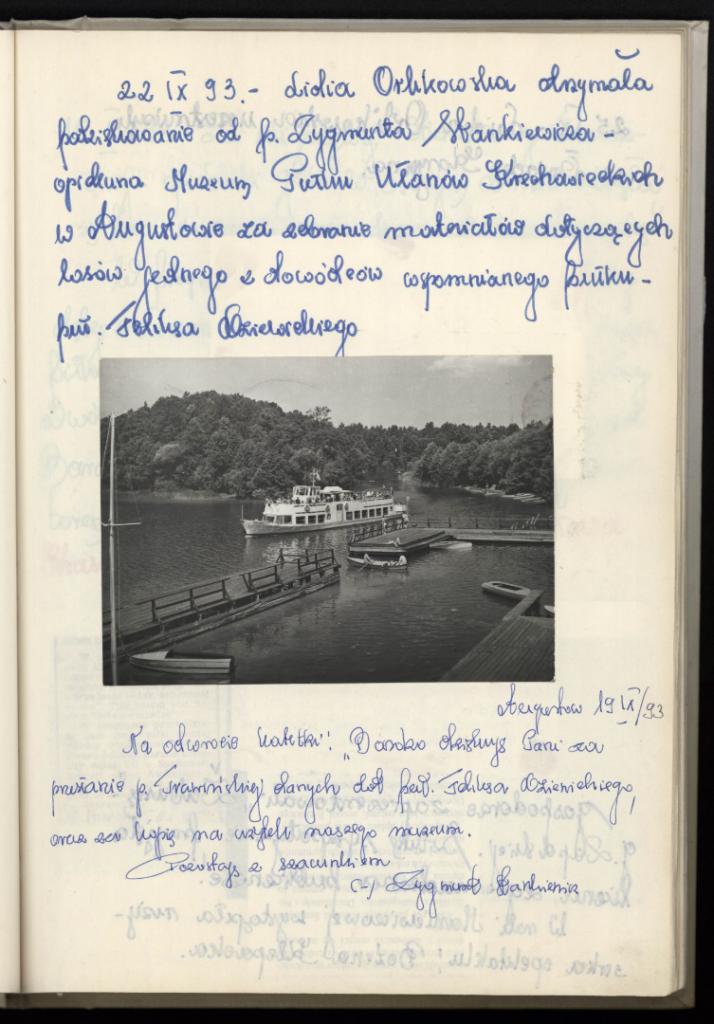 22 IX 93.- Lidia Orlikowska otrzymała
podziękowanie od p. Zygmunta Stankiewicza -
opiekuna Muzeum Pułku Ułanów Krechowieckich
w Augustowie za zebranie materiałów dotyczących
losów jednego z dowódców wspomnianego pułku -
płk. Feliksa Dziewickiego
Augustów 19 IX/93
Na odwrocie kartki: "Bardzo dziękuję Pani za
przekazanie p. danych dot. płk. Feliksa Dziewickiego,
oraz za kopię na użytek naszego muzeum.
Pozostaję z szacunkiem
(-) Zygmunt Stankiewicz